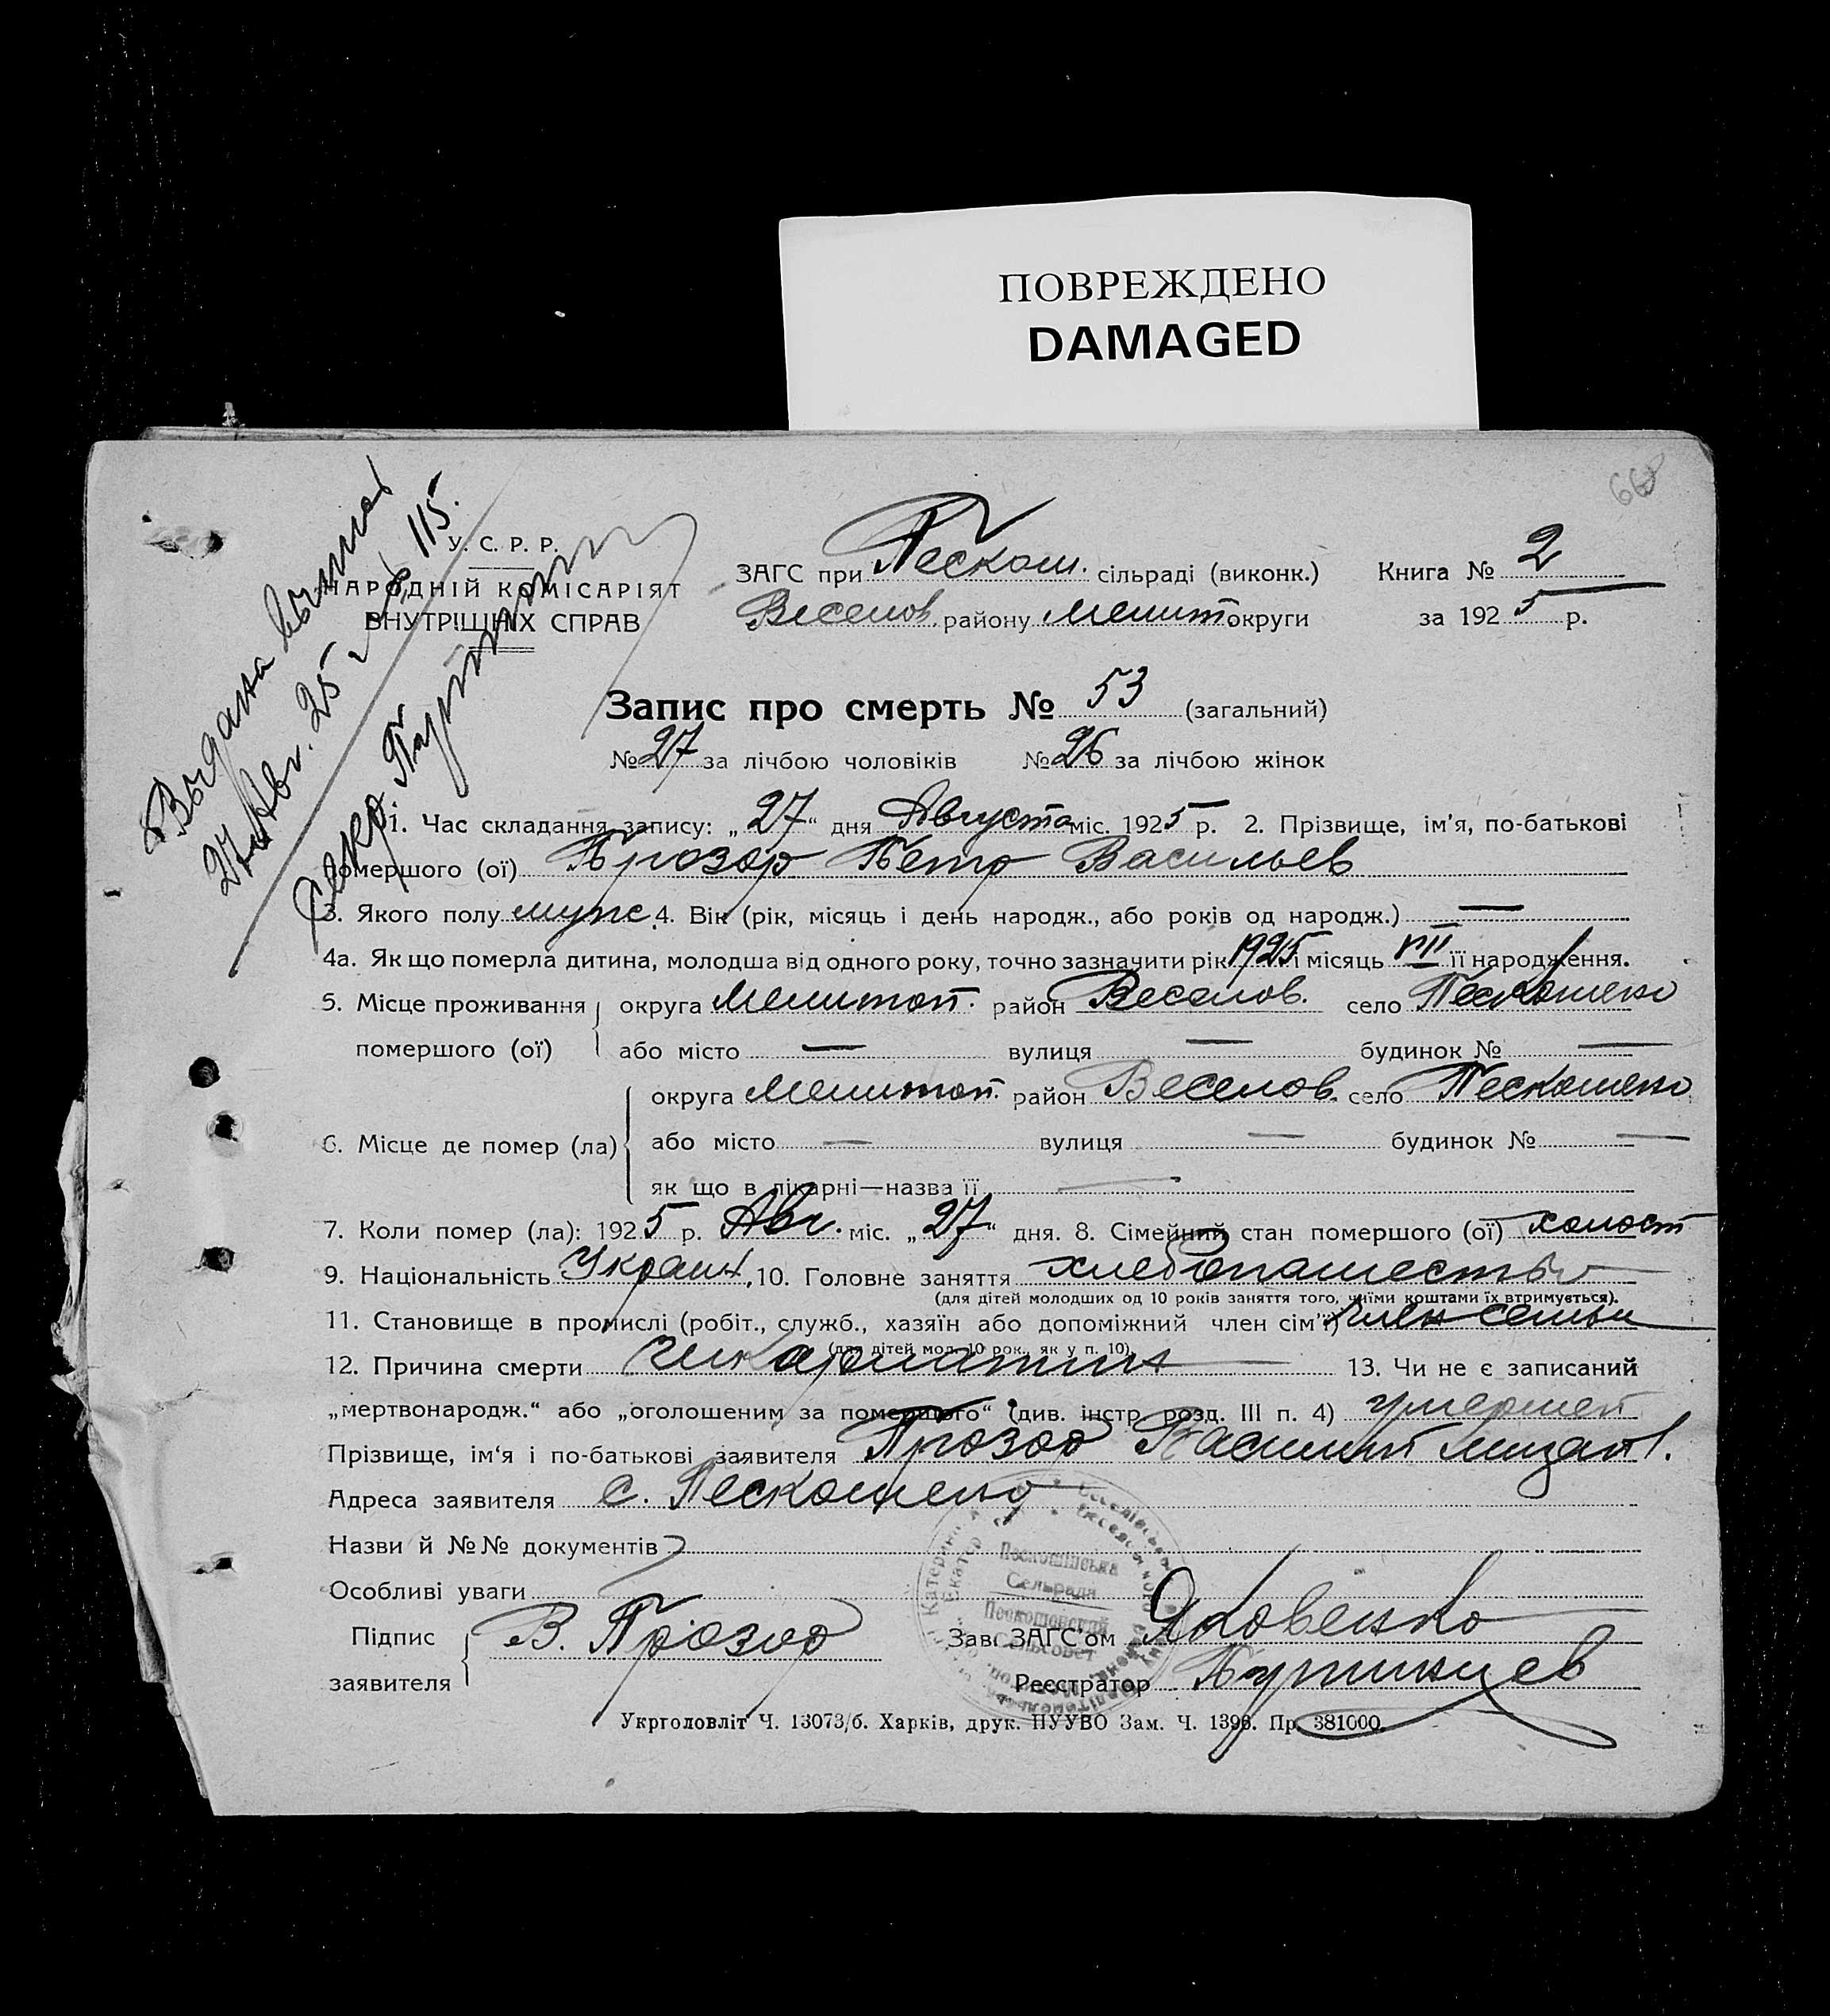 ПОВРЕЖДЕНО
DAMAGED
668
Выдана выпись
27 Авг. 25 г. № 115.
Секр.
У. С. Р. Р.
НАРОДНІЙ КОМІСАРІЯТ
ВНУТРІШНІХ СПРАВ
ЗАГС при Пескош. сільраді (виконк.) Книга № 2
Веселов. району Мелит. округи за 1925 р.
Запис про смерть № 53 (загальний)
№ 27 за лічбою чоловіків № 26 за лічбою жінок
1. Час складання запису: „27“ дня Августа міс. 1925 р. 2. Прізвище, ім'я, по-батькові
помершого (ої) Прозор Петр Васильев
3. Якого полу мужс. 4. Вік (рік, місяць і день народж., або років од народж.) —
4а. Як що померла дитина, молодша від одного року, точно зазначити рік 1925 і місяць VIII її народження.
5. Місце проживання округа Мелитоп. район Веселов. село Пескошено
помершого (ої) або місто — вулиця — будинок № —
округа Мелитоп. район Веселов. село Пескошено
6. Місце де помер (ла) або місто — вулиця — будинок № —
як що в лікарні—назва її —
7. Коли помер (ла): 1925 р. Авг. міс. „27“ дня. 8. Сімейний стан помершого (ої) холост
9. Національність Украин. 10. Головне заняття хлебопашество
(для дітей молодших од 10 років заняття того, чиїми коштами їх втримується).
11. Становище в промислі (робіт., служб., хазяїн або допоміжний член сім'ї) член семьи
(для дітей мол. 10 рок., як у п. 10)
12. Причина смерти 13. Чи не є записаний
„мертвонародж.“ або „оголошеним за помершого“ (див. інстр. розд. III п. 4) умерший
Прізвище, ім'я і по-батькові заявителя Прозор Василий
Адреса заявителя с. Пескошено
Назви й №№ документів
Особливі уваги
Підпис В. Прозор Зав. ЗАГС'ом Яковенко
заявителя Реєстратор
Пескошинська
Сельрада
Пескошинский
Сельсовет
Укрголовліт Ч. 13073/б. Харків, друк. ПУУВО Зам. Ч. 1396. Пр. 381000.